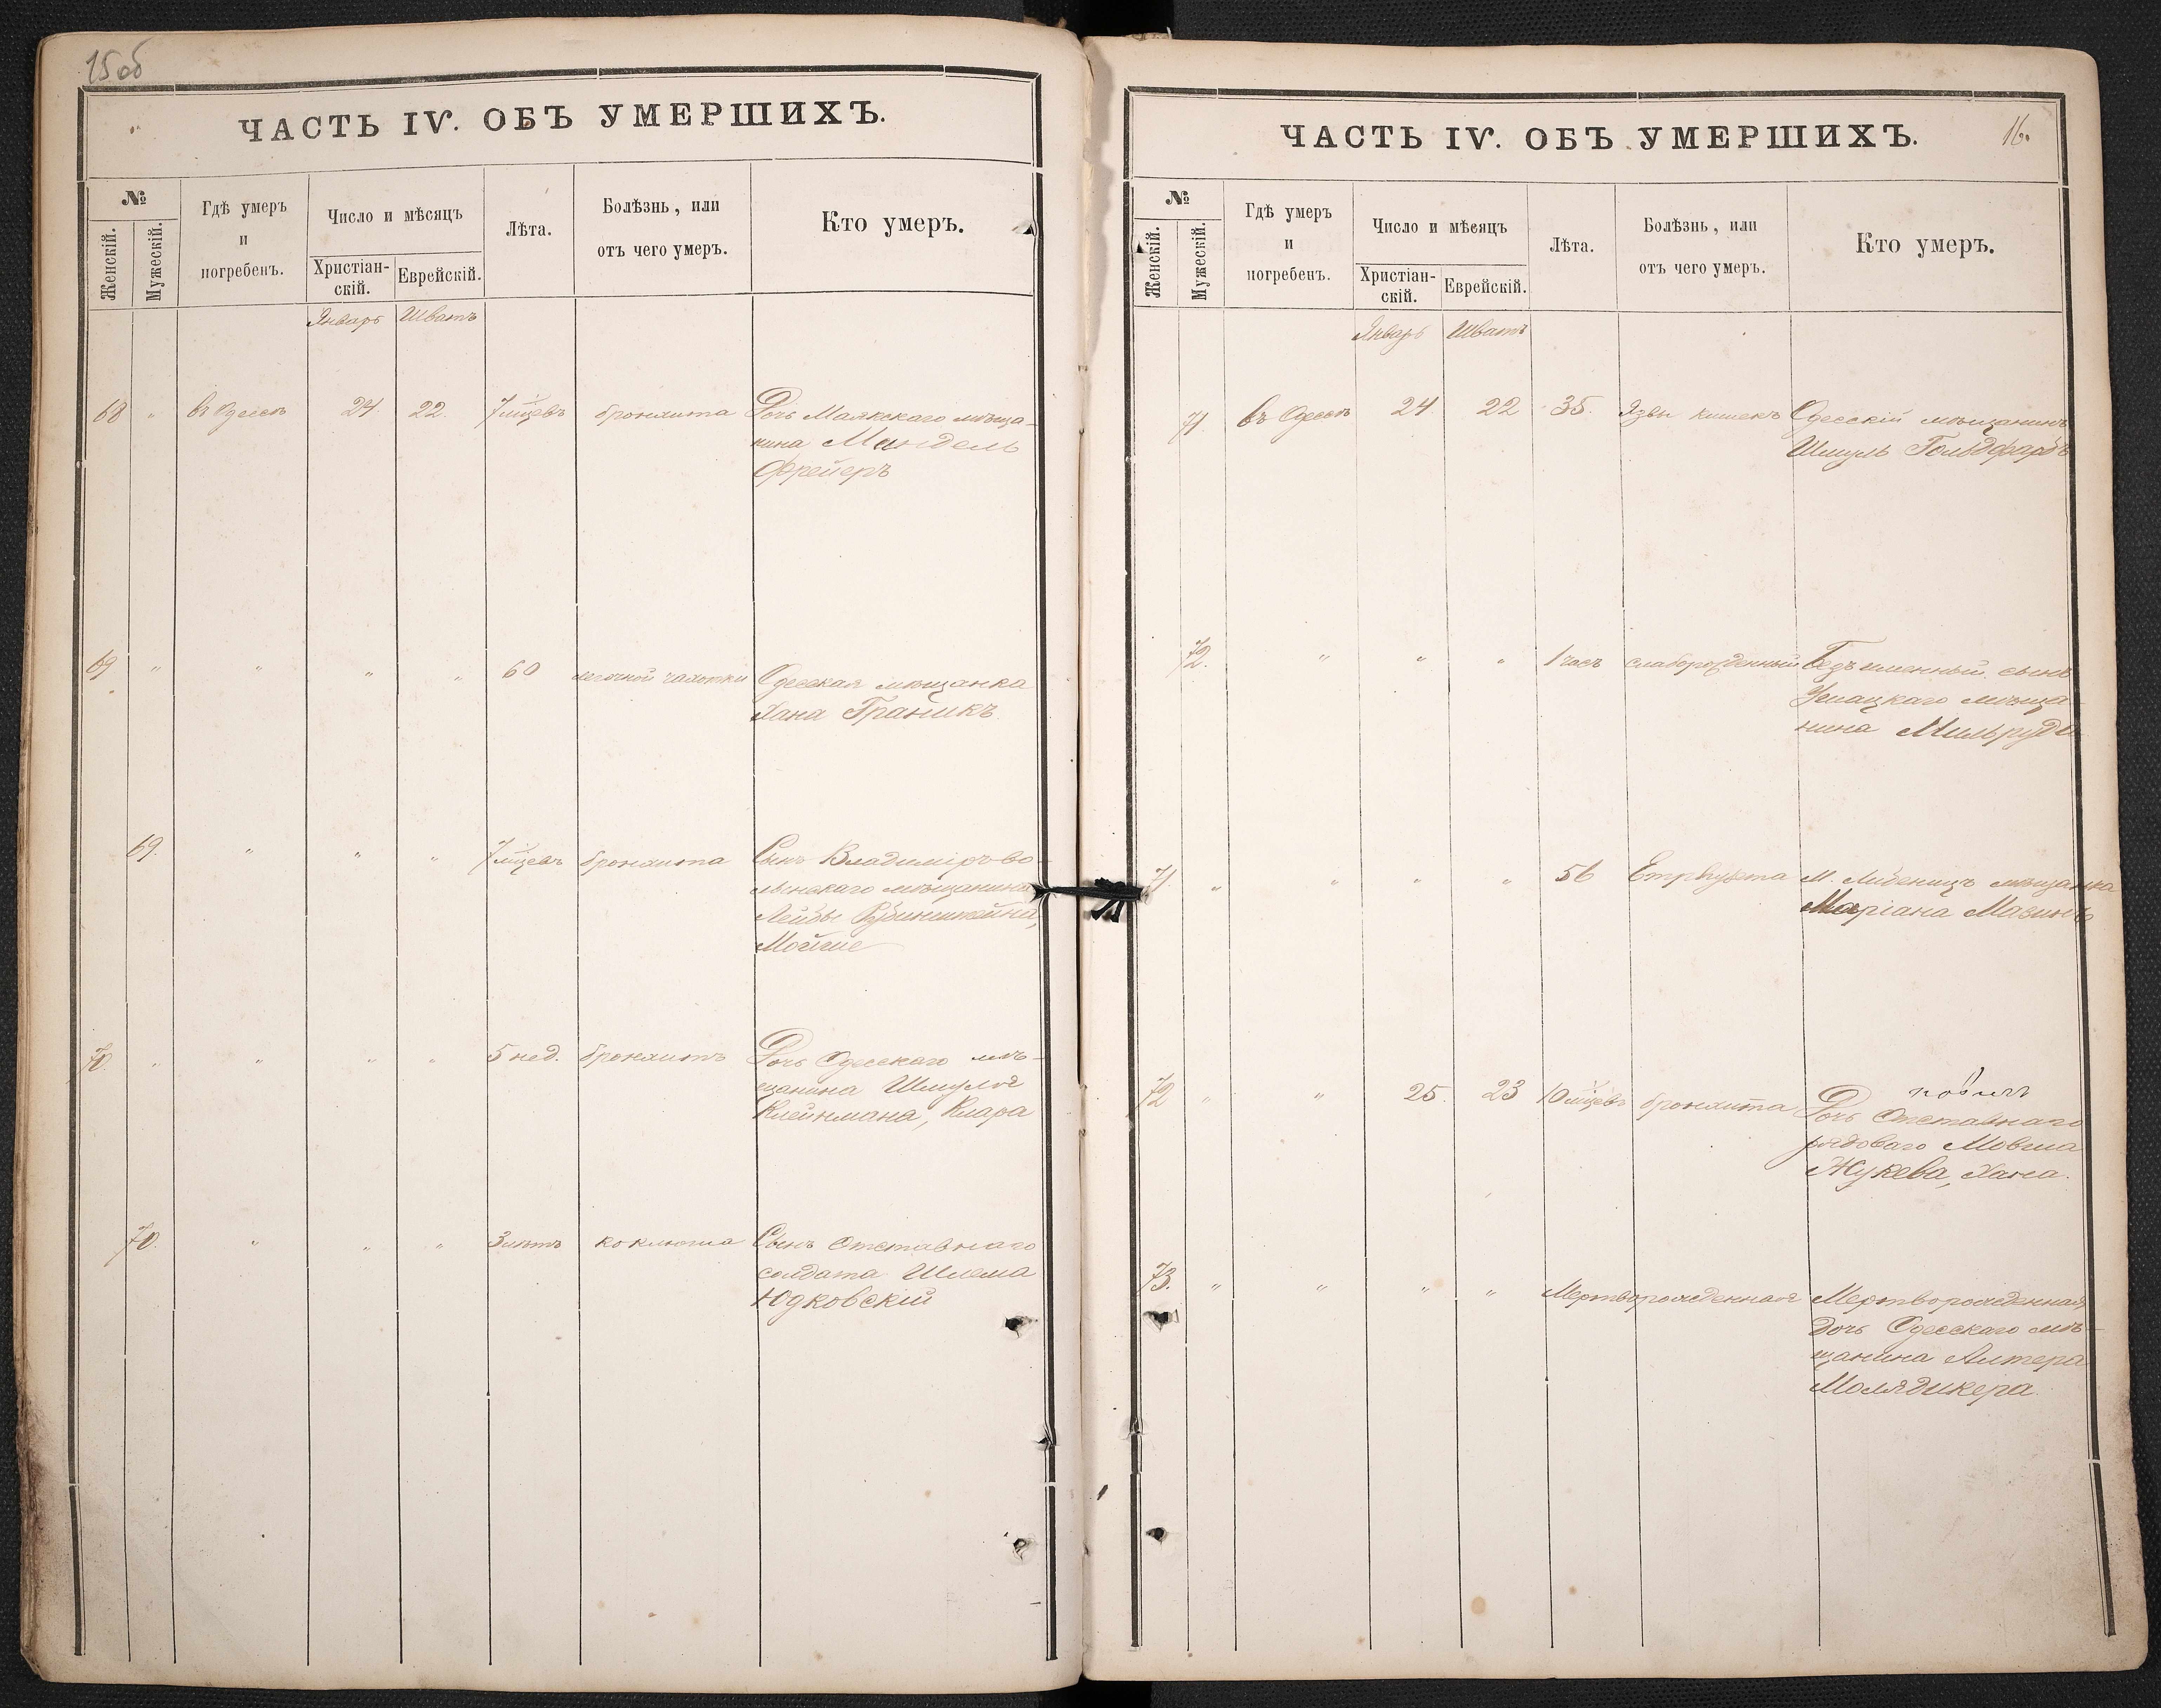 15об
ЧАСТЬ IV. ОБЪ УМЕРШИХЪ.
№
Женскій.
Мужескій.
Гдѣ умеръ
и
погребенъ.
Число и мѣсяцъ
Христіан-
скій.
Еврейскій.
Лѣта.
Болѣзнь, или
отъ чего умеръ.
Кто умеръ.
Январь Шватъ
68 " въ Одессѣ 24 22. 7 мѣсцевъ бронхита Дочь Маякскаго мѣща-
нина Мандель
Фрейеръ
69 " " " " 60 легочной чахотки Одесская мѣщанка
Хана Граникъ
69. " " " 7 мѣсцевъ бронхита Сынъ Владиміръ-Во-
лынскаго мѣщанина
Лейбы Рубинштейна,
Мойше
70. " " " " 5 нед. бронхитъ Дочь Одесскаго мѣ-
щанина Шмуля
Клейнмана, Клара
70. " " " 3 лѣтъ коклюша Сынъ Отставнаго
солдата Шлема
Юдковскій
ЧАСТЬ IV. ОБЪ УМЕРШИХЪ.
16.
№
Женскій.
Мужескій.
Гдѣ умеръ
и
погребенъ.
Число и мѣсяцъ
Христіан-
скій.
Еврейскій.
Лѣта.
Болѣзнь, или
отъ чего умеръ.
Кто умеръ.
Январь Шватъ
71. въ Одессѣ 24. 22 35. Язвы кишекъ Одесскій мѣщанинъ
Шмуль Гольдфарбъ
72. " " " 1 часъ слаборожденный Безъименный сынъ
мѣща-
нина Мильрудъ
71. " " " " 56 М. мѣщанка
Маріана Мазинъ
72 " " 25. 23 10 мѣсцевъ бронхита Дочь Отставнаго
рядоваго Мовша
Жукева, Хана.
73. " " " " Мертворожденная Мертворожденная
дочь Одесскаго мѣ-
щанина Алтера
Молядикера.